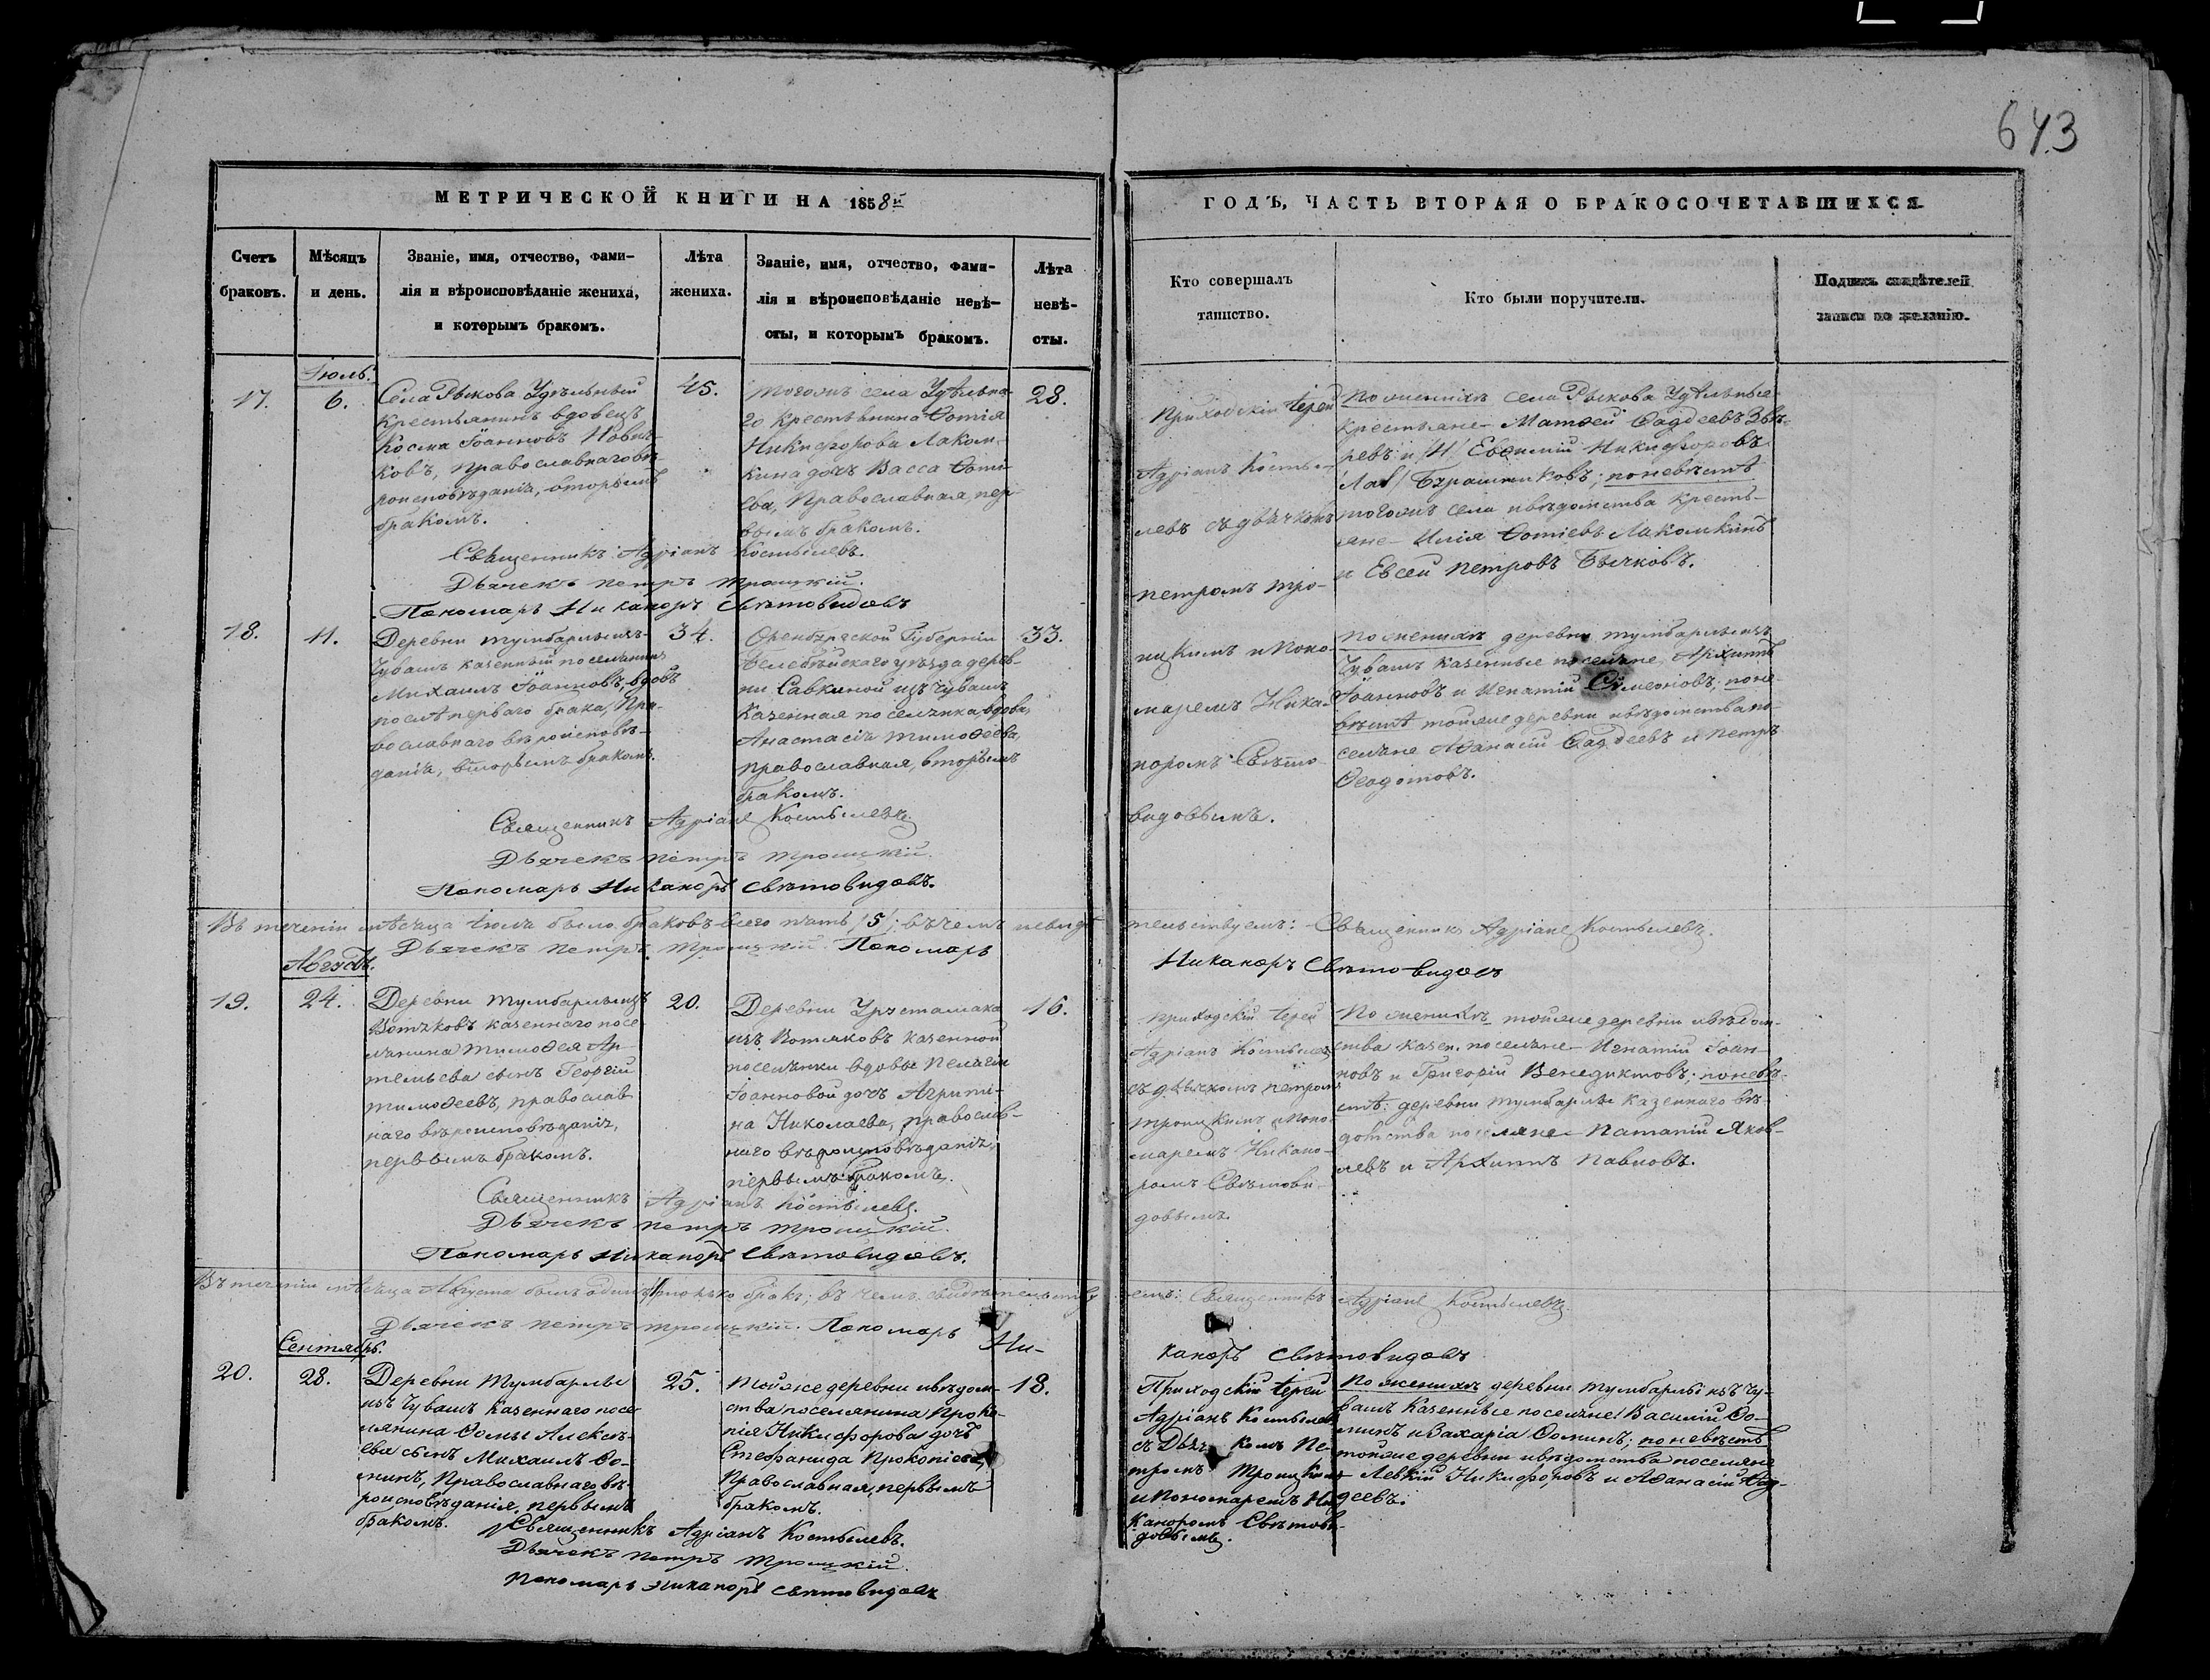 643
МЕТРИЧЕСКОЙ КНИГИ НА 1858й
ГОДЪ, ЧАСТЬ ВТОРАЯ О БРАКОСОЧЕТАВШИХСЯ.
Счетъ
браковъ.
Мѣсяцъ
и день.
Званіе, имя, отчество, фами-
лія и вѣроисповѣданіе жениха,
и которымъ бракомъ.
Лѣта
жениха.
Званіе, имя, отчество, фами-
лія и вѣроисповѣданіе невѣ-
сты, и которымъ бракомъ.
Лѣта
невѣ-
сты.
Кто совершалъ
таинство.
Кто были поручители.
Подпись свидѣтелей
записи по желанію.
Іюль.
17.
6.
Села Рыкова Удѣльный
крестьянинъ вдовецъ
Косма Іоанновъ
ковъ, Православнаго вѣ-
роисповѣданія, вторымъ
бракомъ.
45.
Тогожъ села Удѣльна-
го крестьянина Ѳотія
Никифорова Лаком-
кина дочь Васса Ѳоті-
ева, Православная, пер-
вымъ бракомъ.
28.
Приходскій Іерей
Адріанъ Косты-
левъ съ дьячкомъ
Петромъ Тро-
ицкимъ и Поно-
маремъ Ника-
норомъ Свѣто-
видовымъ.
По женихѣ села Рыкова Удѣльные
крестьяне Матѳей Ѳаддеевъ Звѣ-
ревъ и Евѳимій Никифоровъ
поневѣстѣ
тогожъ села и вѣдомства кресть-
яне Илія Ѳотіевъ Лакомкинъ
и Евсей Петровъ Бычковъ.
Священникъ Адріанъ Костылевъ.
Дьячекъ Петръ Троицкій.
Пономарь Никаноръ Свѣтовидовъ
18.
11.
Деревни Тумбарлы изъ
Чувашъ казенный поселянинъ
Михаилъ Іоанновъ, вдовъ
послѣ перваго брака, Пра-
вославнаго вѣроисповѣ-
данія, вторымъ бракомъ.
34.
Оренбургской Губерніи
Белебѣйскаго уѣзда дерев-
ни Савкиной изъ Чувашъ
Казенная поселянка, вдова,
Анастасія Тимоѳеева,
православная, вторымъ
бракомъ.
33.
По женихѣ деревни Тумбарлы изъ
Чувашъ казенные поселяне Архиппъ
Іоанновъ и Игнатій Симеоновъ; поне-
вѣстѣ тойже деревни и вѣдомства по-
селяне Аѳанасій Ѳаддеевъ и Петръ
Ѳеодотовъ.
Священникъ Адріанъ Костылевъ.
Дьячекъ Петръ Троицкій.
Пономарь Никаноръ Свѣтовидовъ.
Въ теченіи мѣсяца Іюля было браковъ всего пять /5/; въ чемъ и свидѣ-
тельствуемъ: Священникъ Адріанъ Костылевъ.
Дьячекъ Петръ Троицкій. Пономарь
Никаноръ Свѣтовидовъ
Августъ.
19.
24.
Деревни Тумбарлы изъ
Вотяковъ казеннаго посе-
лянина Тимоѳея Ар-
темьева сынъ Георгій
Тимоѳеевъ, православ-
наго вѣроисповѣданія,
первымъ бракомъ.
20.
Деревни Урустамака
изъ Вотяковъ казенной
поселянки вдовы Пелагіи
Іоанновой дочь Агрипи-
на Николаева, православ-
наго вѣроисповѣданія,
первымъ бракомъ.
16.
Приходскій Іерей
Адріанъ Костылевъ
съ дьячкомъ Петромъ
Троицкимъ и Поно-
маремъ Никано-
ромъ Свѣтови-
довымъ.
По женихѣ тойже деревни и вѣдом-
ства казен. поселяне Игнатій Іоан-
новъ и Григорій Венедиктовъ; поневѣ-
стѣ: деревни Тумбарлы казеннаго вѣ-
домства поселяне Патапій Яков-
левъ и Архиппъ Павловъ.
Священникъ Адріанъ Костылевъ.
Дьячекъ Петръ Троицкій.
Пономарь Никаноръ Свѣтовидовъ.
Въ теченіи мѣсяца Августа былъ одинъ только бракъ; въ чемъ свидѣтельству-
емъ: Священникъ Адріанъ Костылевъ.
Дьячекъ Петръ Троицкій. Пономарь Ни-
каноръ Свѣтовидовъ
Сентябрь.
20.
28.
Деревни Тумбарлы
изъ Чувашъ Казеннаго посе-
лянина Ѳомы Алексѣ-
ева сынъ Михаилъ Ѳо-
минъ, Православнаго вѣ-
роисповѣданія, первымъ
бракомъ.
25.
Тойже деревни и вѣдом-
ства поселянина Проко-
пія Никифорова дочь
Стефанида Прокопіева,
Православная, первымъ
бракомъ.
18.
Приходскій Іерей
Адріанъ Костылевъ
съ Дьячкомъ Пе-
тромъ Троицкимъ
и Пономаремъ Ни-
каноромъ Свѣтови-
довымъ.
По женихѣ деревни Тумбарлы изъ Чу-
вашъ Казенные поселяне: Василій Ѳо-
минъ и Захарія Ѳоминъ; по невѣстѣ
тойже деревни и вѣдомства поселяне
Левкій Никифоровъ и Аѳанасій Ѳад-
деевъ.
Священникъ Адріанъ Костылевъ.
Дьячекъ Петръ Троицкій.
Пономарь Никаноръ Свѣтовидовъ